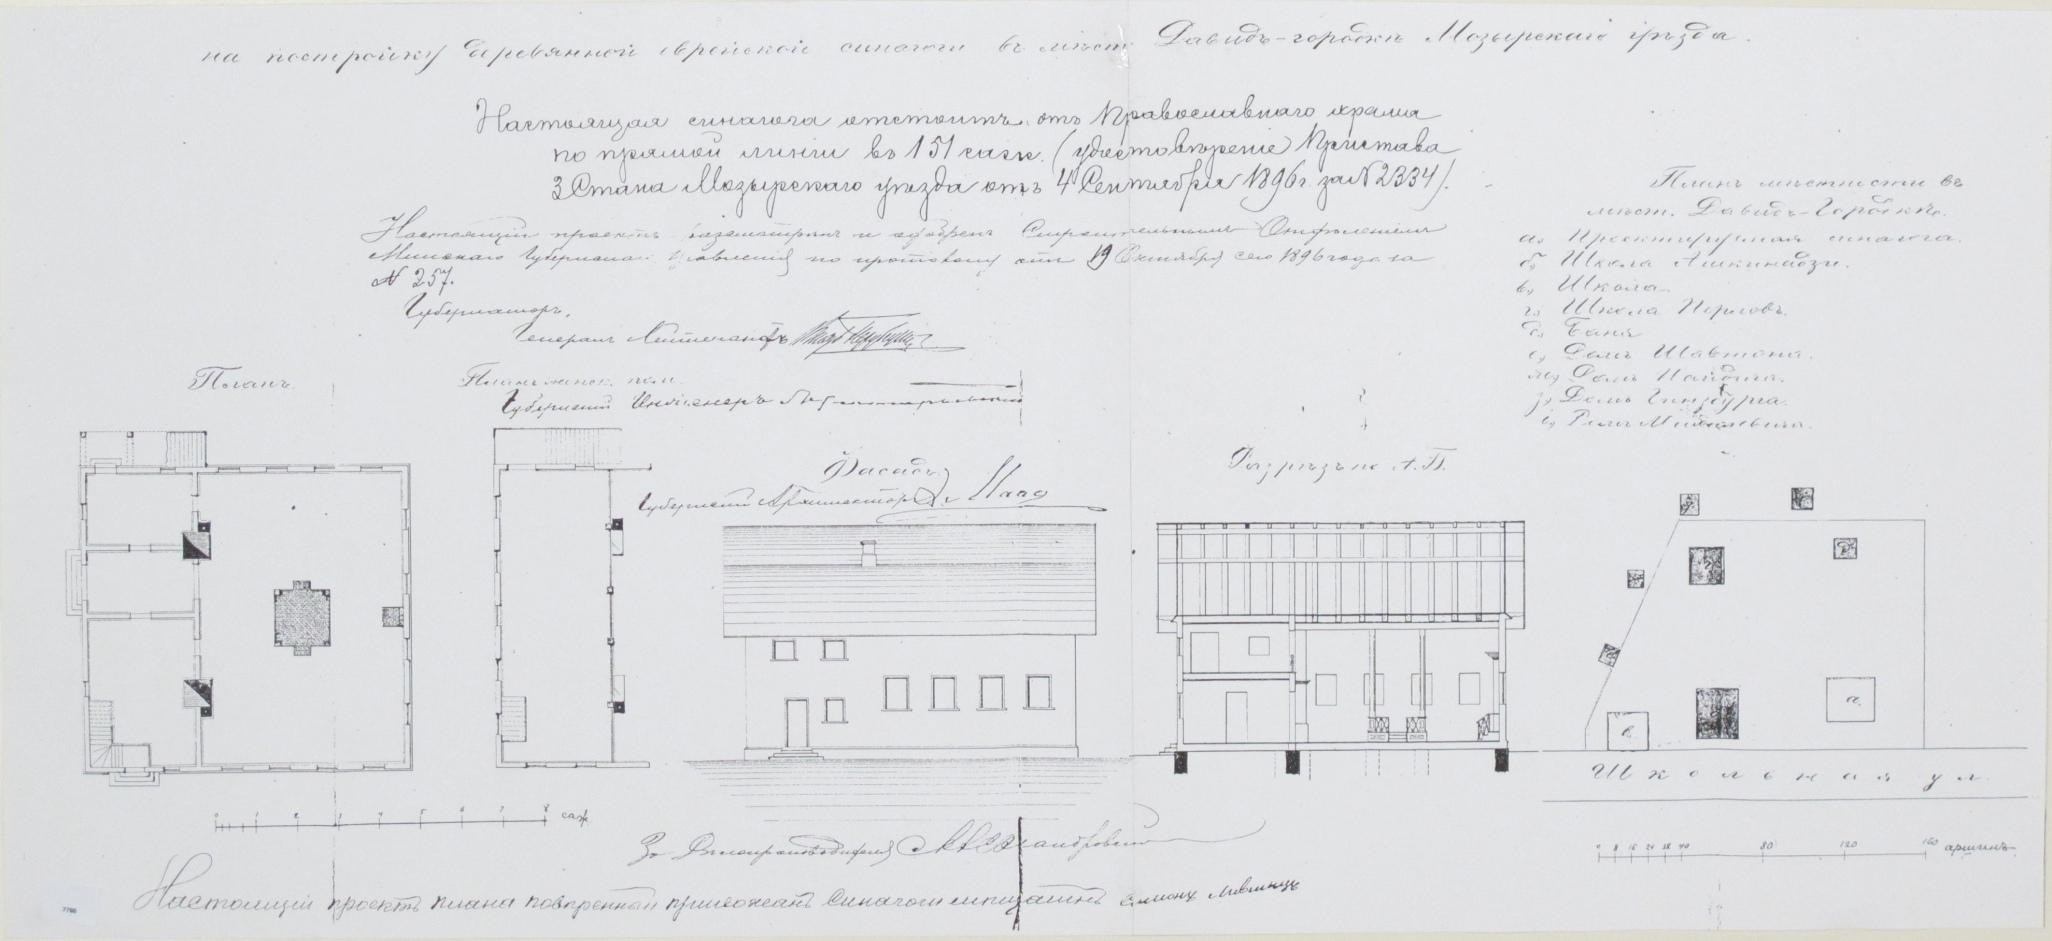 на постройку деревянной еврейской синагоги въ мѣст. Давидъ-городкѣ Мозырскаго уѣзда.
Настоящая синагога отстоитъ отъ Православнаго храма
по прямой линіи въ 151 саж. (удостовѣреніе Пристава
3 Стана Мозырскаго уѣзда отъ 4 Сентября 1896 г. за № 2334).
Настоящій проектъ разсмотрѣнъ и одобренъ Строительнымъ Отдѣленіемъ
Минскаго Губернскаго Правленія по протоколу отъ 19 Октября сего 1896 года за
№ 257.
Губернаторъ,
Генералъ Лейтенантъ
Планъ мѣстности въ
мѣст. Давидъ-Городкѣ.
а) Проектируемая синагога.
б) Школа Ашкинадзи.
в) Школа.
г) Школа
д) Баня
е) Домъ
ж) Домъ
з) Домъ Гинзбурга.
и) Домъ
Планъ.
Планъ женск. пом.
Губернскій Инженеръ
Фасадъ
Губернскій Архитекторъ
Разрѣзъ по А.Б.
а.
в.
Школьная ул.
0 1 2 3 4 5 6 7 8 саж.
0 8 16 24 32 40 80 120 160 аршинъ
За Дѣлопроизводителя
Настоящій проектъ плана повѣренный прихожанъ синагоги
7786